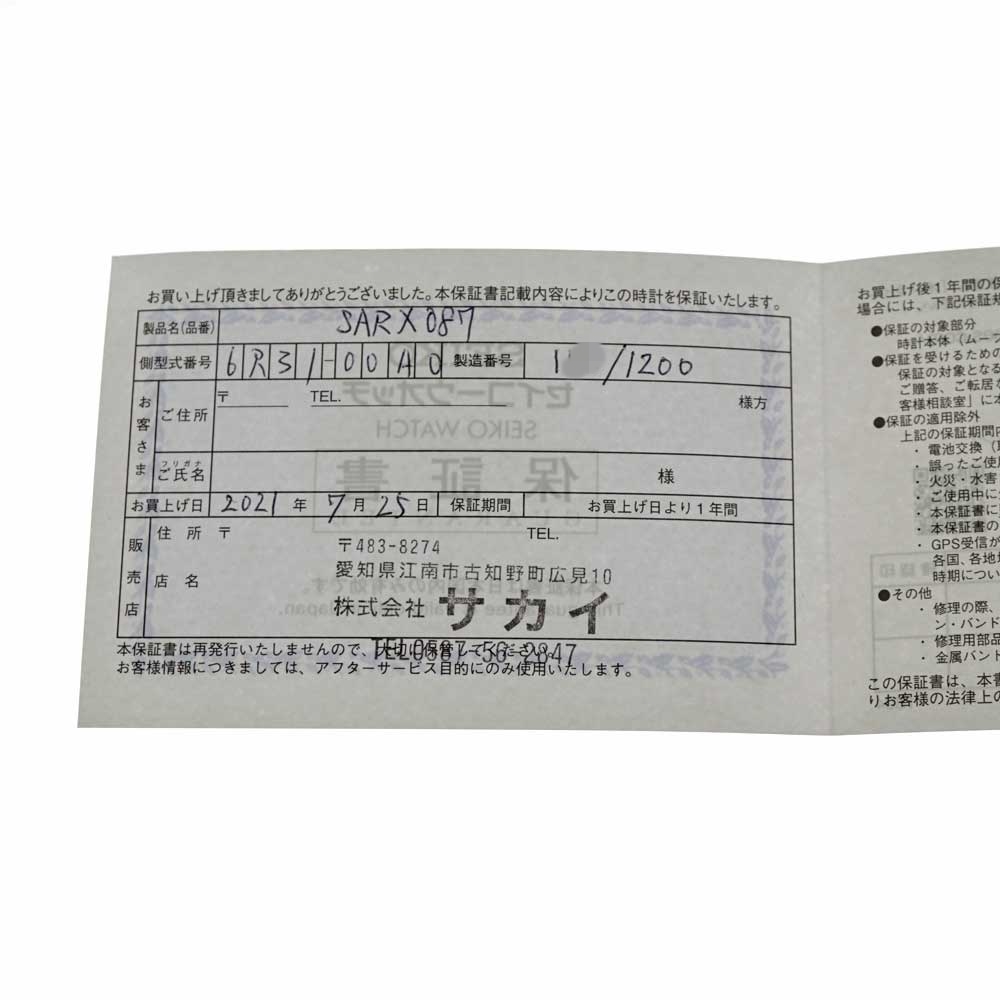 お買い上げ頂きましてありがとうございました。本保証書記載内容によりこの時計を保証いたします。
製品名(品番) SARX087
側型式番号 6R31-00A0 製造番号 1 /1200
お客さま
ご住所 〒 TEL. 様方
フリガナ
ご氏名 様
お買上げ日 2021 年 7 月 25 日 保証期間 お買上げ日より1年間
販売店
住所 〒 TEL.
〒483-8274
愛知県江南市古知野町広見10
店名 株式会社 サカイ
TEL0587-56-2847
本保証書は再発行いたしませんので、大切に保管してください。
お客様情報につきましては、アフターサービス目的にのみ使用いたします。
セイコーウオッチ
SEIKO WATCH
保証書
お買上げ後1年間の保
場合には、下記保証規
●保証の対象部分
時計本体(ムーブ
●保証を受けるための
保証の対象となる
ご贈答、ご転居な
客様相談室」に本
●保証の適用除外
上記の保証期間内
・電池交換(
・誤ったご使用
・火災・水害
・ご使用中に
・本保証書に
・本保証書の
・GPS受信が
各国、各地域
時期につい
●その他
・修理の際、
ン・バンド
・修理用部品
・金属バンド
この保証書は、本書
りお客様の法律上の